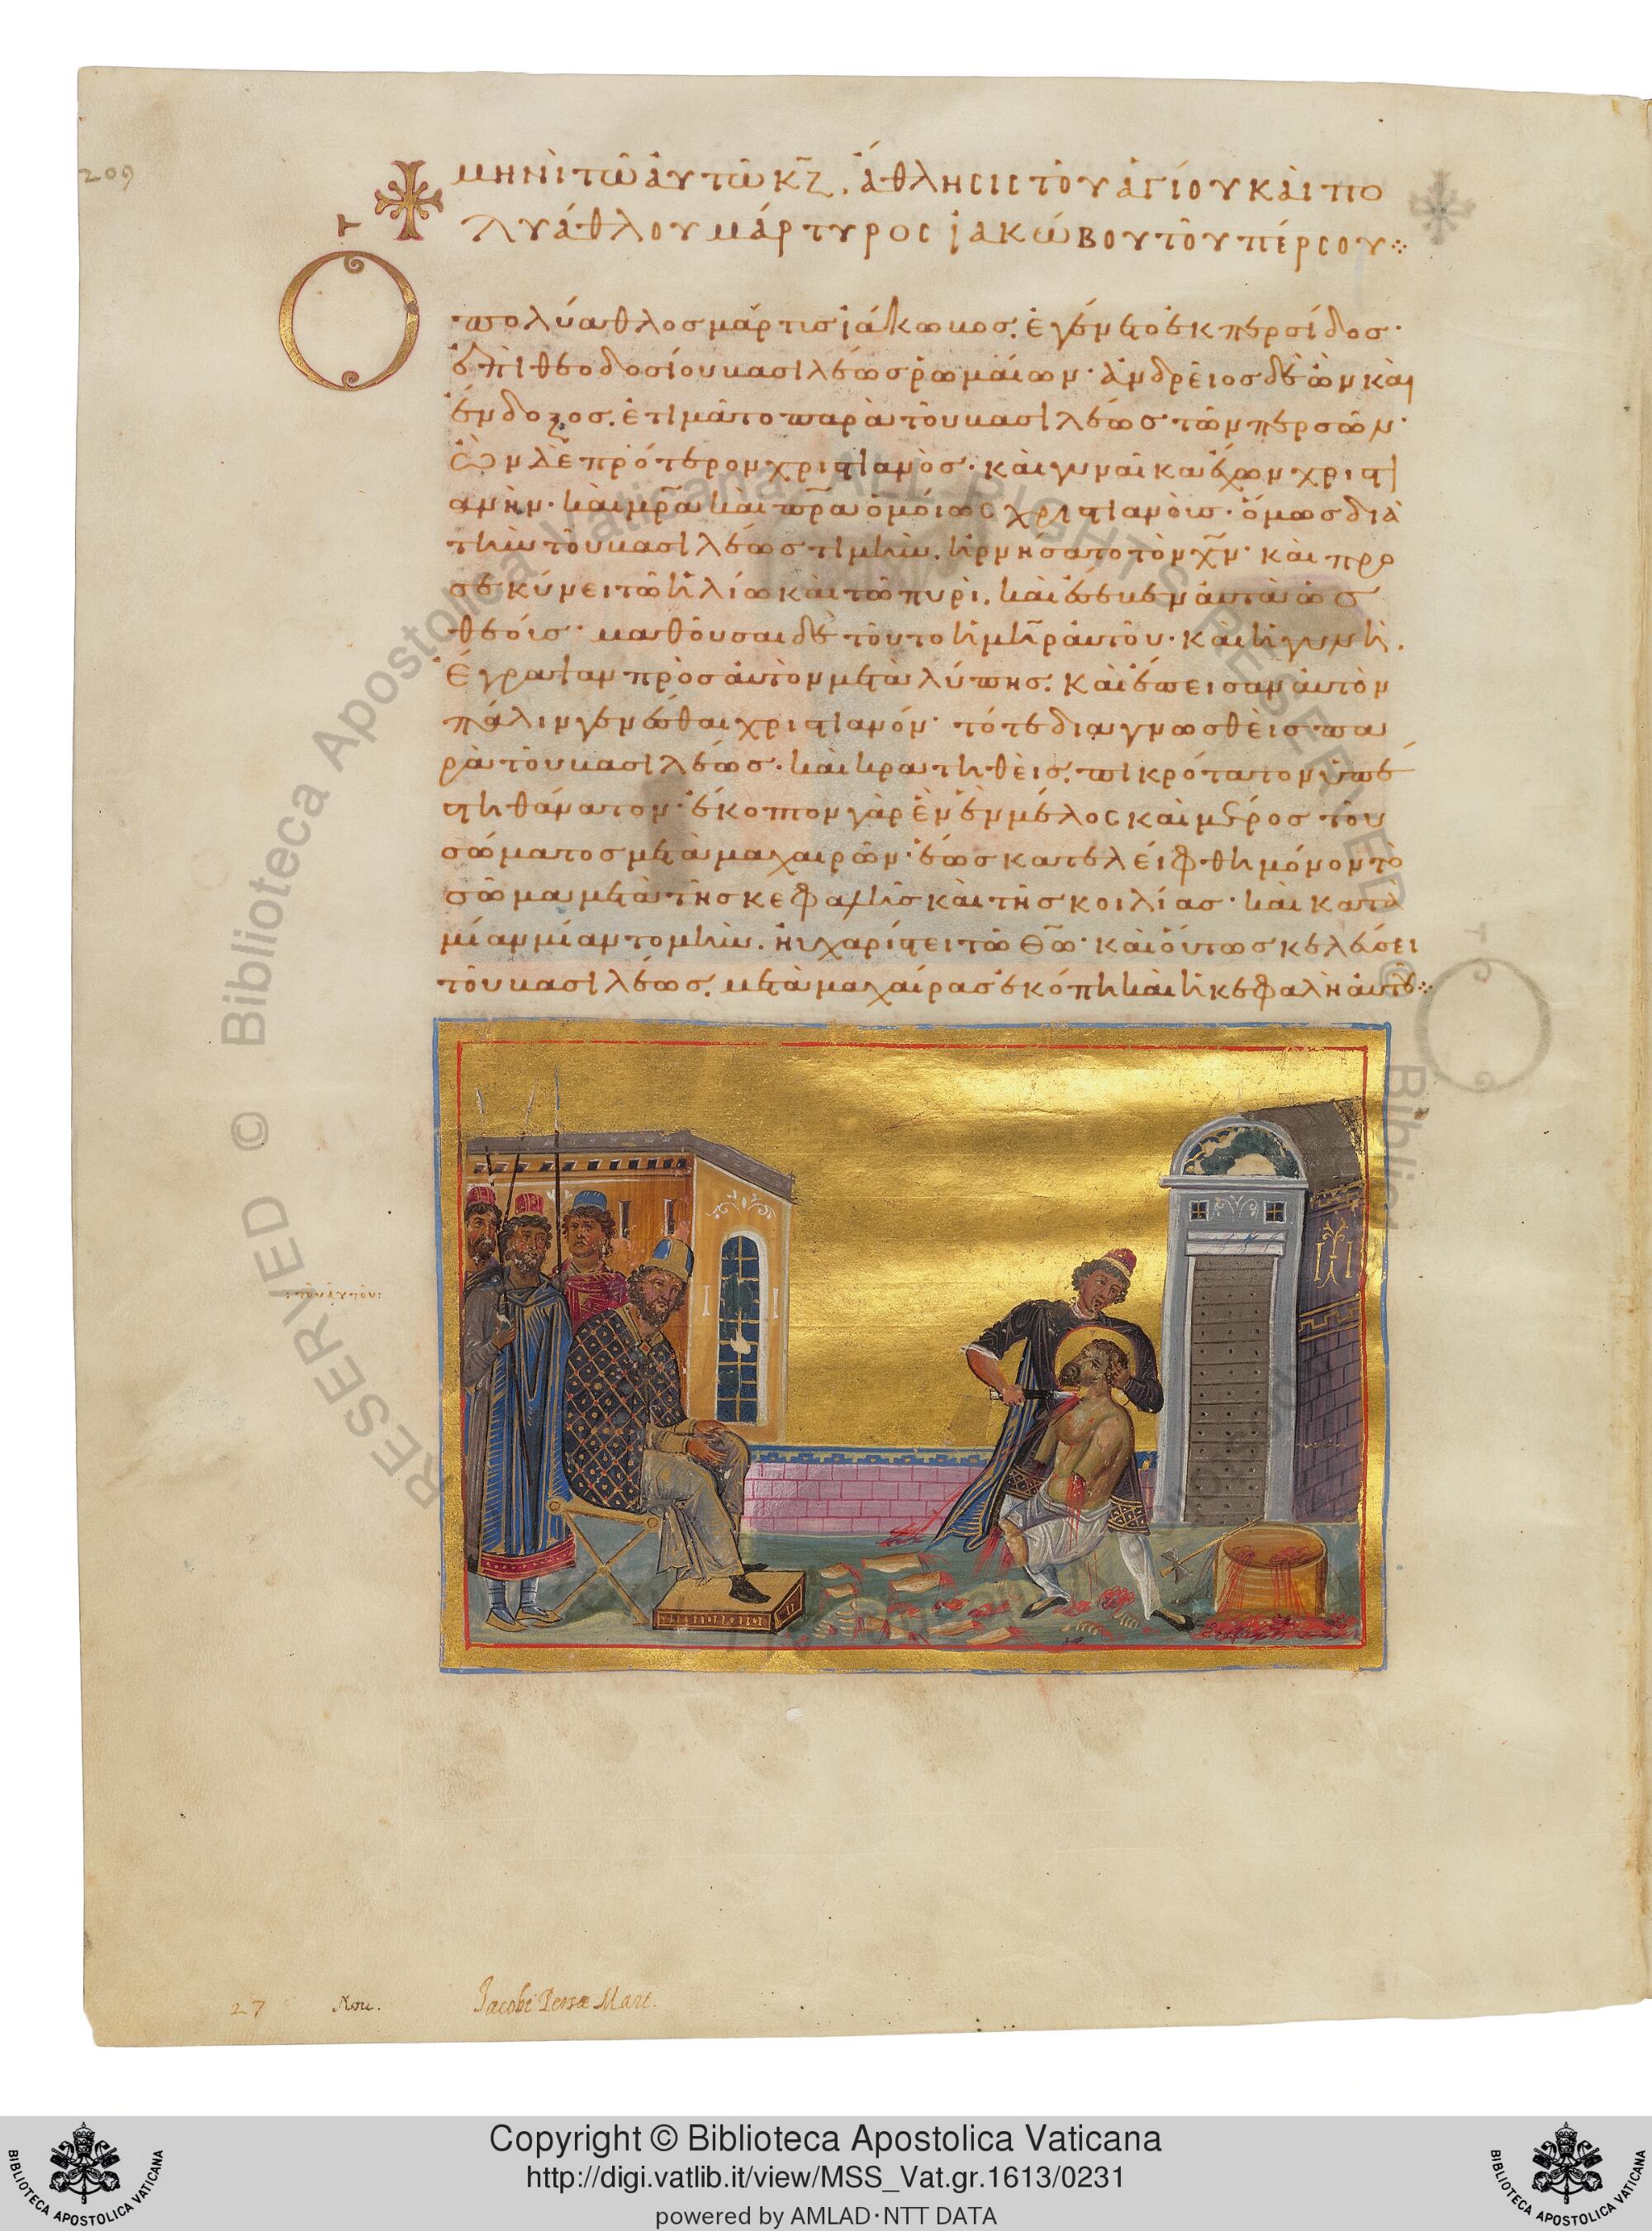 209
μηνὶ τῶ ἀυτῶ κζ̄. ἄθλησις τοῦ ἁγίου καὶ πο
λυάθλου μάρτυρος ἰακώβου τοῦ πέρσου⁘
Ὁ πολύαθλος μάρτυς ἰάκωβος, ἐγένετο ἐκ περσίδος·
ἐπὶ θεοδοσίου βασιλέως ρωμαίων· ἀνδρεῖος δὲ ὢν καὶ
ἔνδοξος, ἐτιμᾶτο παρὰ τοῦ βασιλέως τῶν περσῶν·
ὢν δὲ πρότερον χριστιανὸς· καὶ γυναῖκα ἔχων χριστι
ανὴν· καὶ μρ̄α καὶ πρ̄α ὁμοίως χριστιανοὺς· ὅμως διὰ
τὴν τοῦ βασιλέως τιμὴν, ἠρνήσατο τὸν χν̄· καὶ προ
σεκύνει τῶ ἡλίω καὶ τῶ πυρὶ, καὶ ἔσεβεν ἀυτὰ ὡς
θεόυς· μαθοῦσαι δὲ τοῦτο ἡ μηρ̄ ἀυτοῦ· καὶ ἡ γυνὴ,
ἔγραψαν πρὸς ἀυτὸν μετὰ λύπης, καὶ ἔπεισαν ἀυτὸν
πάλιν γενέσθαι χριστιανόν· τότε διαγνωσθεὶς πα
ρὰ τοῦ βασιλέως· καὶ κρατηθεὶς, πικρότατον ὑπέ
στη θάνατον· ἔκοπτον γὰρ ἓν ἓν μέλος καὶ μέρος τοῦ
σώματος μετὰ μαχαιρῶν· ἕως κατελείφθη μόνον τὸ
σῶμα μετὰ τῆς κεφαλῆς καὶ τῆς κοιλίας· καὶ κατὰ
μίαν μίαν τομὴν, ηὐχαρίστει τῶ Θῶ̄· καὶ οὕτως κελεύσει
τοῦ βασιλέως, μετὰ μαχαίρας ἐκόπη καὶ ἡ κεφαλὴ ἀυτοῦ⁘
: τοῦ ἀυτοῦ :
27 Nou. Jacobi Persæ Mart.
RESERVED © Biblioteca Apostolica Vaticana, ALL RIGHTS RESERVED © Biblioteca Apostolica
Copyright © Biblioteca Apostolica Vaticana
http://digi.vatlib.it/view/MSS_Vat.gr.1613/0231
powered by AMLAD·NTT DATA
BIBLIOTECA APOSTOLICA VATICANA
BIBLIOTECA APOSTOLICA VATICANA